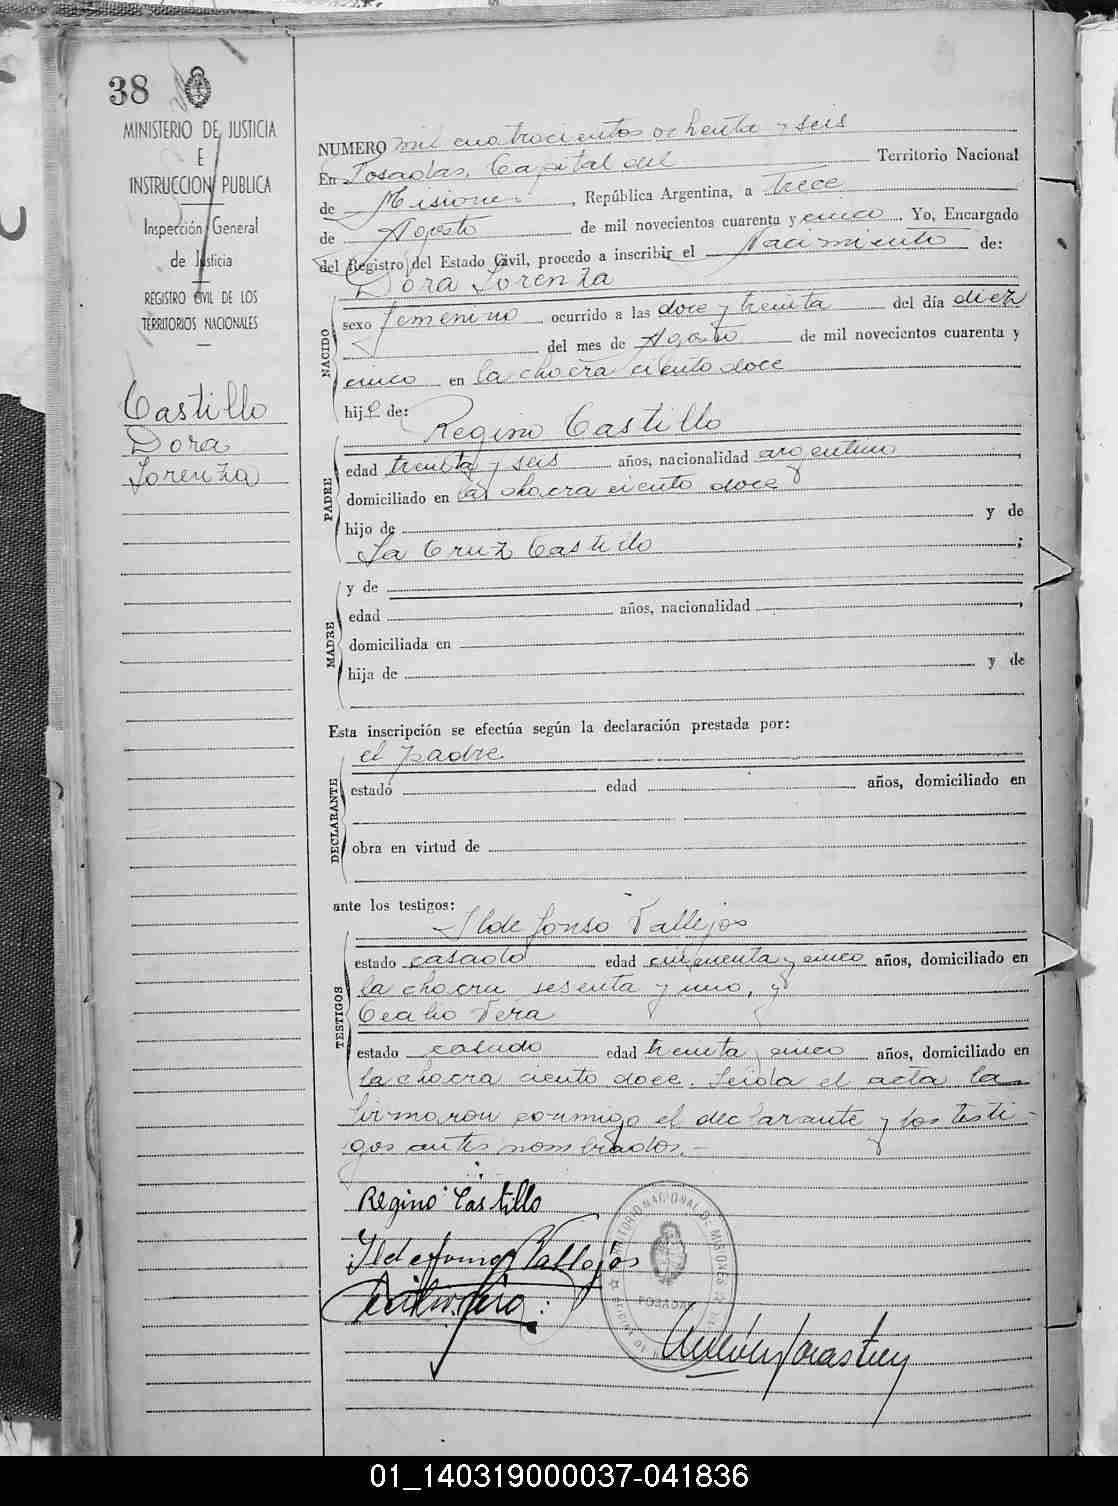 38
MINISTERIO DE JUSTICIA
E
INSTRUCCION PUBLICA
Inspección General
de Justicia
REGISTRO CIVIL DE LOS
TERRITORIOS NACIONALES
Castillo
Dora
Lorenza
NUMERO mil cuatrocientos ochenta y seis
En Posadas, Capital del Territorio Nacional
de Misiones, República Argentina, a trece
de Agosto de mil novecientos cuarenta y cinco. Yo, Encargado
del Registro del Estado Civil, procedo a inscribir el Nacimiento de:
Dora Lorenza
NACIDO
sexo femenino ocurrido a las doce y treinta del día diez
del mes de Agosto de mil novecientos cuarenta y
cinco en la chacra ciento doce
hija de:
Regino Castillo
PADRE
edad treinta y seis años, nacionalidad argentino,
domiciliado en la chacra ciento doce
hijo de y de
La Cruz Castillo;
MADRE
y de
edad años, nacionalidad,
domiciliada en
hija de y de
Esta inscripción se efectúa según la declaración prestada por:
el padre
DECLARANTE
estado edad años, domiciliado en
obra en virtud de
ante los testigos:
Ildefonso Vallejos
TESTIGOS
estado casado edad cincuenta y cinco años, domiciliado en
la chacra sesenta y uno, y
Vera
estado casado edad treinta y cinco años, domiciliado en
la chacra ciento doce. Leida el acta la
firmaron conmigo el declarante y los testi-
gos antes nombrados.-
Regino Castillo
Ildefonso Vallejos
TERRITORIO NACIONAL DE MISIONES
POSADAS
01_140319000037-041836